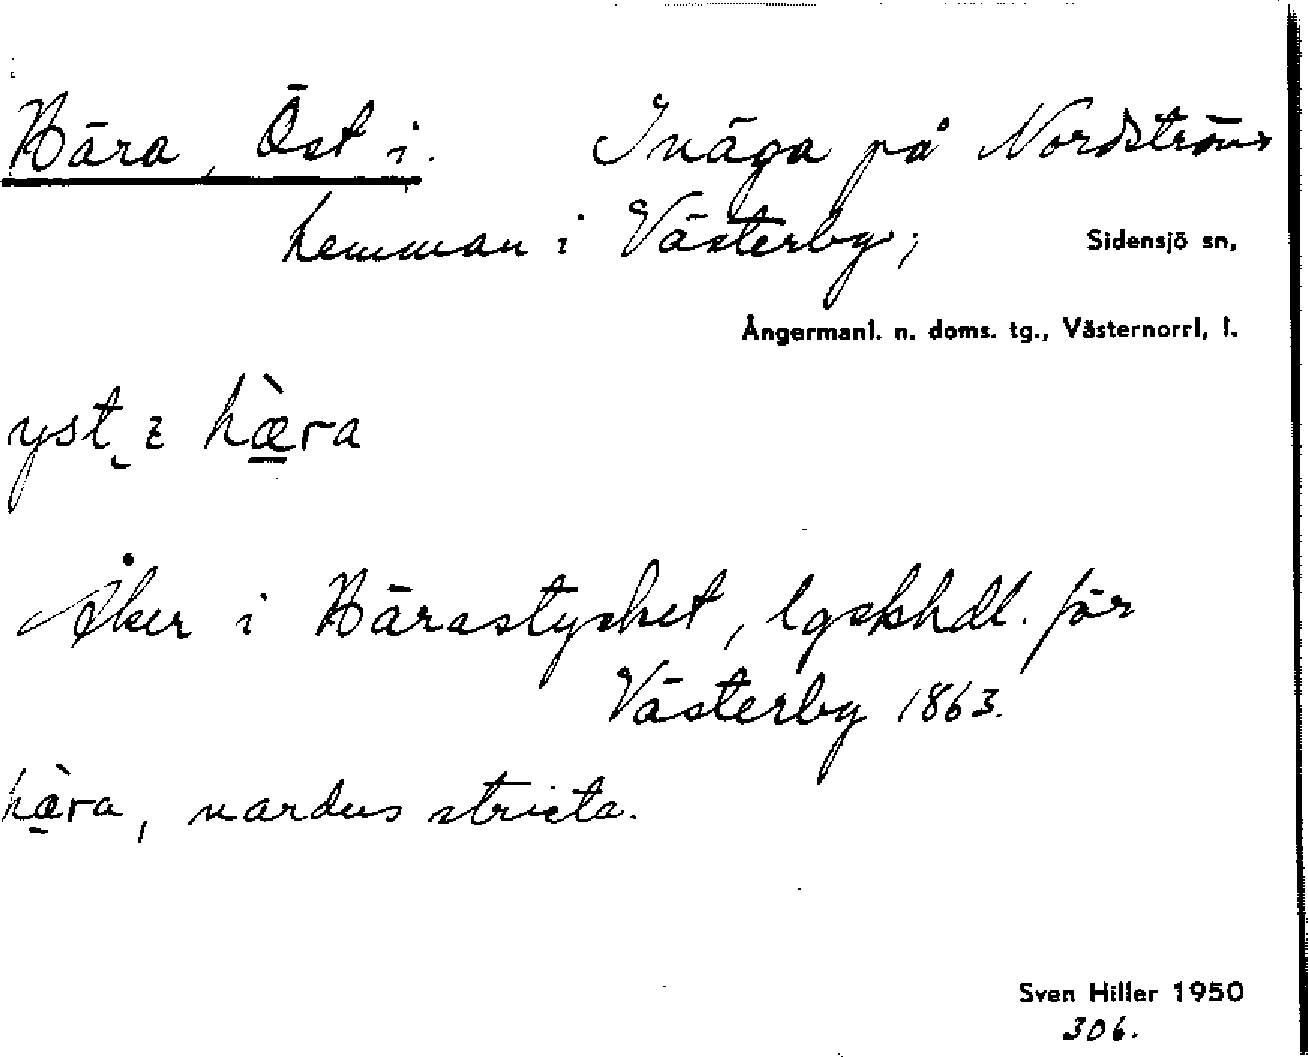 Hära, Öst i. Inäga på Nordströms
hemman i Västerby;
Sidensjö sn,
Ångermanl. n. doms. tg., Västernorrl, l.
yst ɩ hæ̀ra
Åker i Härastycket, lgskhdl. för
Västerby 1863.
hæ̀ra, nardus stricta.
Sven Hiller 1950
306.